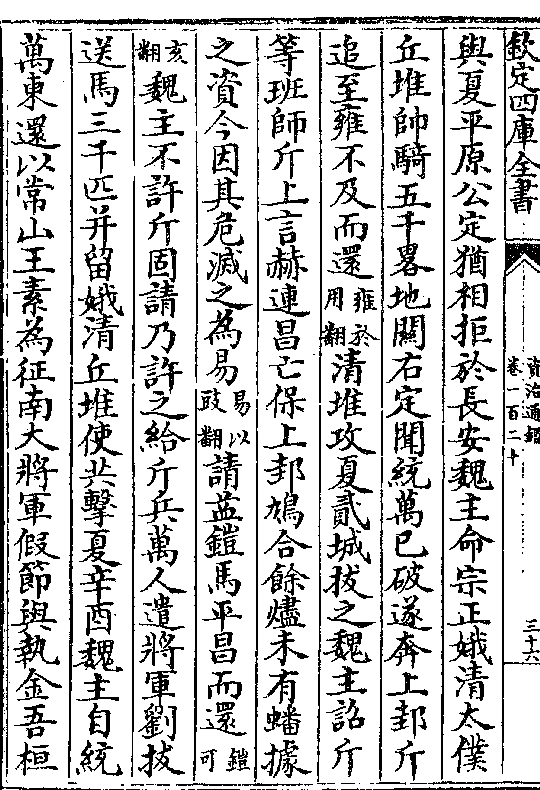 欽定四庫全書
資治通鑑
卷一百二十
三十六
與夏平原公定猶相拒於長安魏主命宗正娥清太僕
丘堆帥騎五千畧地關右定聞統萬已破遂奔上邽斤
追至雍不及而還雍於用翻清堆攻夏貳城拔之魏主詔斤
等班師斤上言赫連昌亡保上邽鳩合餘燼未有蟠據
之資今因其危滅之為易易以豉翻請益鎧馬平昌而還鎧可
亥翻魏主不許斤固請乃許之給斤兵萬人遣將軍劉拔
送馬三千匹并留娥清丘堆使共擊夏辛酉魏主自統
萬東還以常山王素為征南大將軍假節與執金吾桓